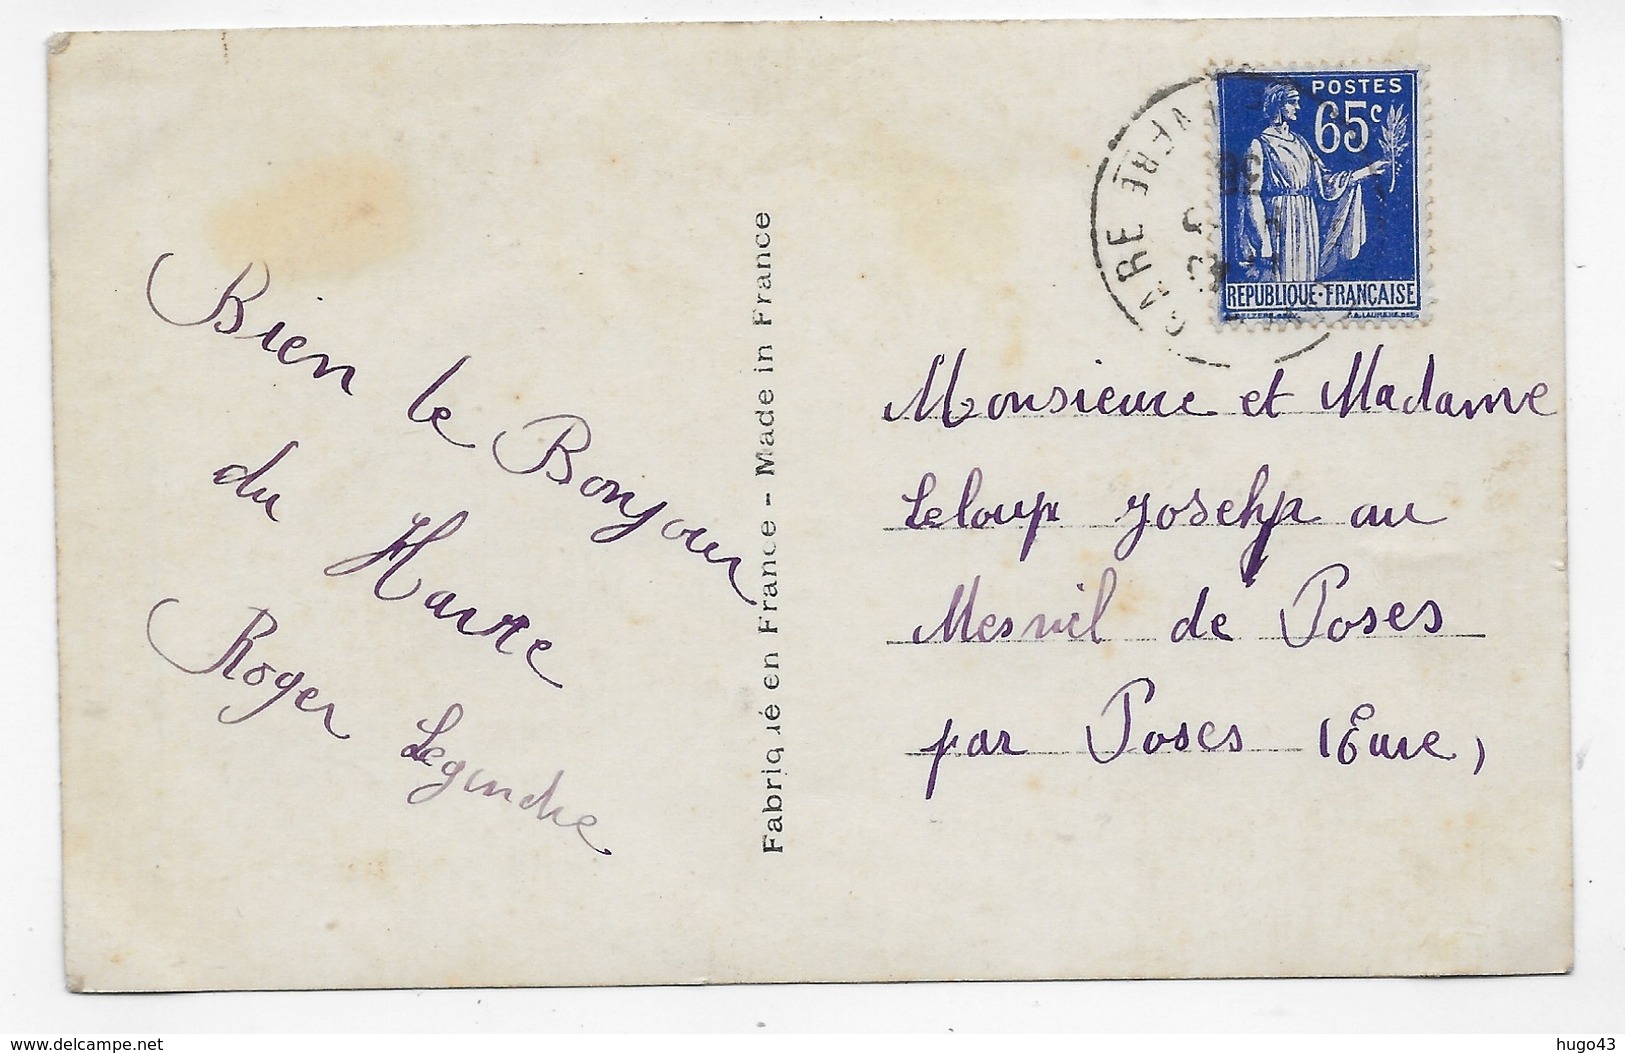 Bien le Bonjour
du Havre
Roger Legendre
Fabriqué en France - Made in France
POSTES
65c
REPUBLIQUE·FRANÇAISE
GARE
Monsieure et Madame
Leloup Josehp au
Mesnil de Poses
par Poses (Eure)
delcampe.net
hugo43